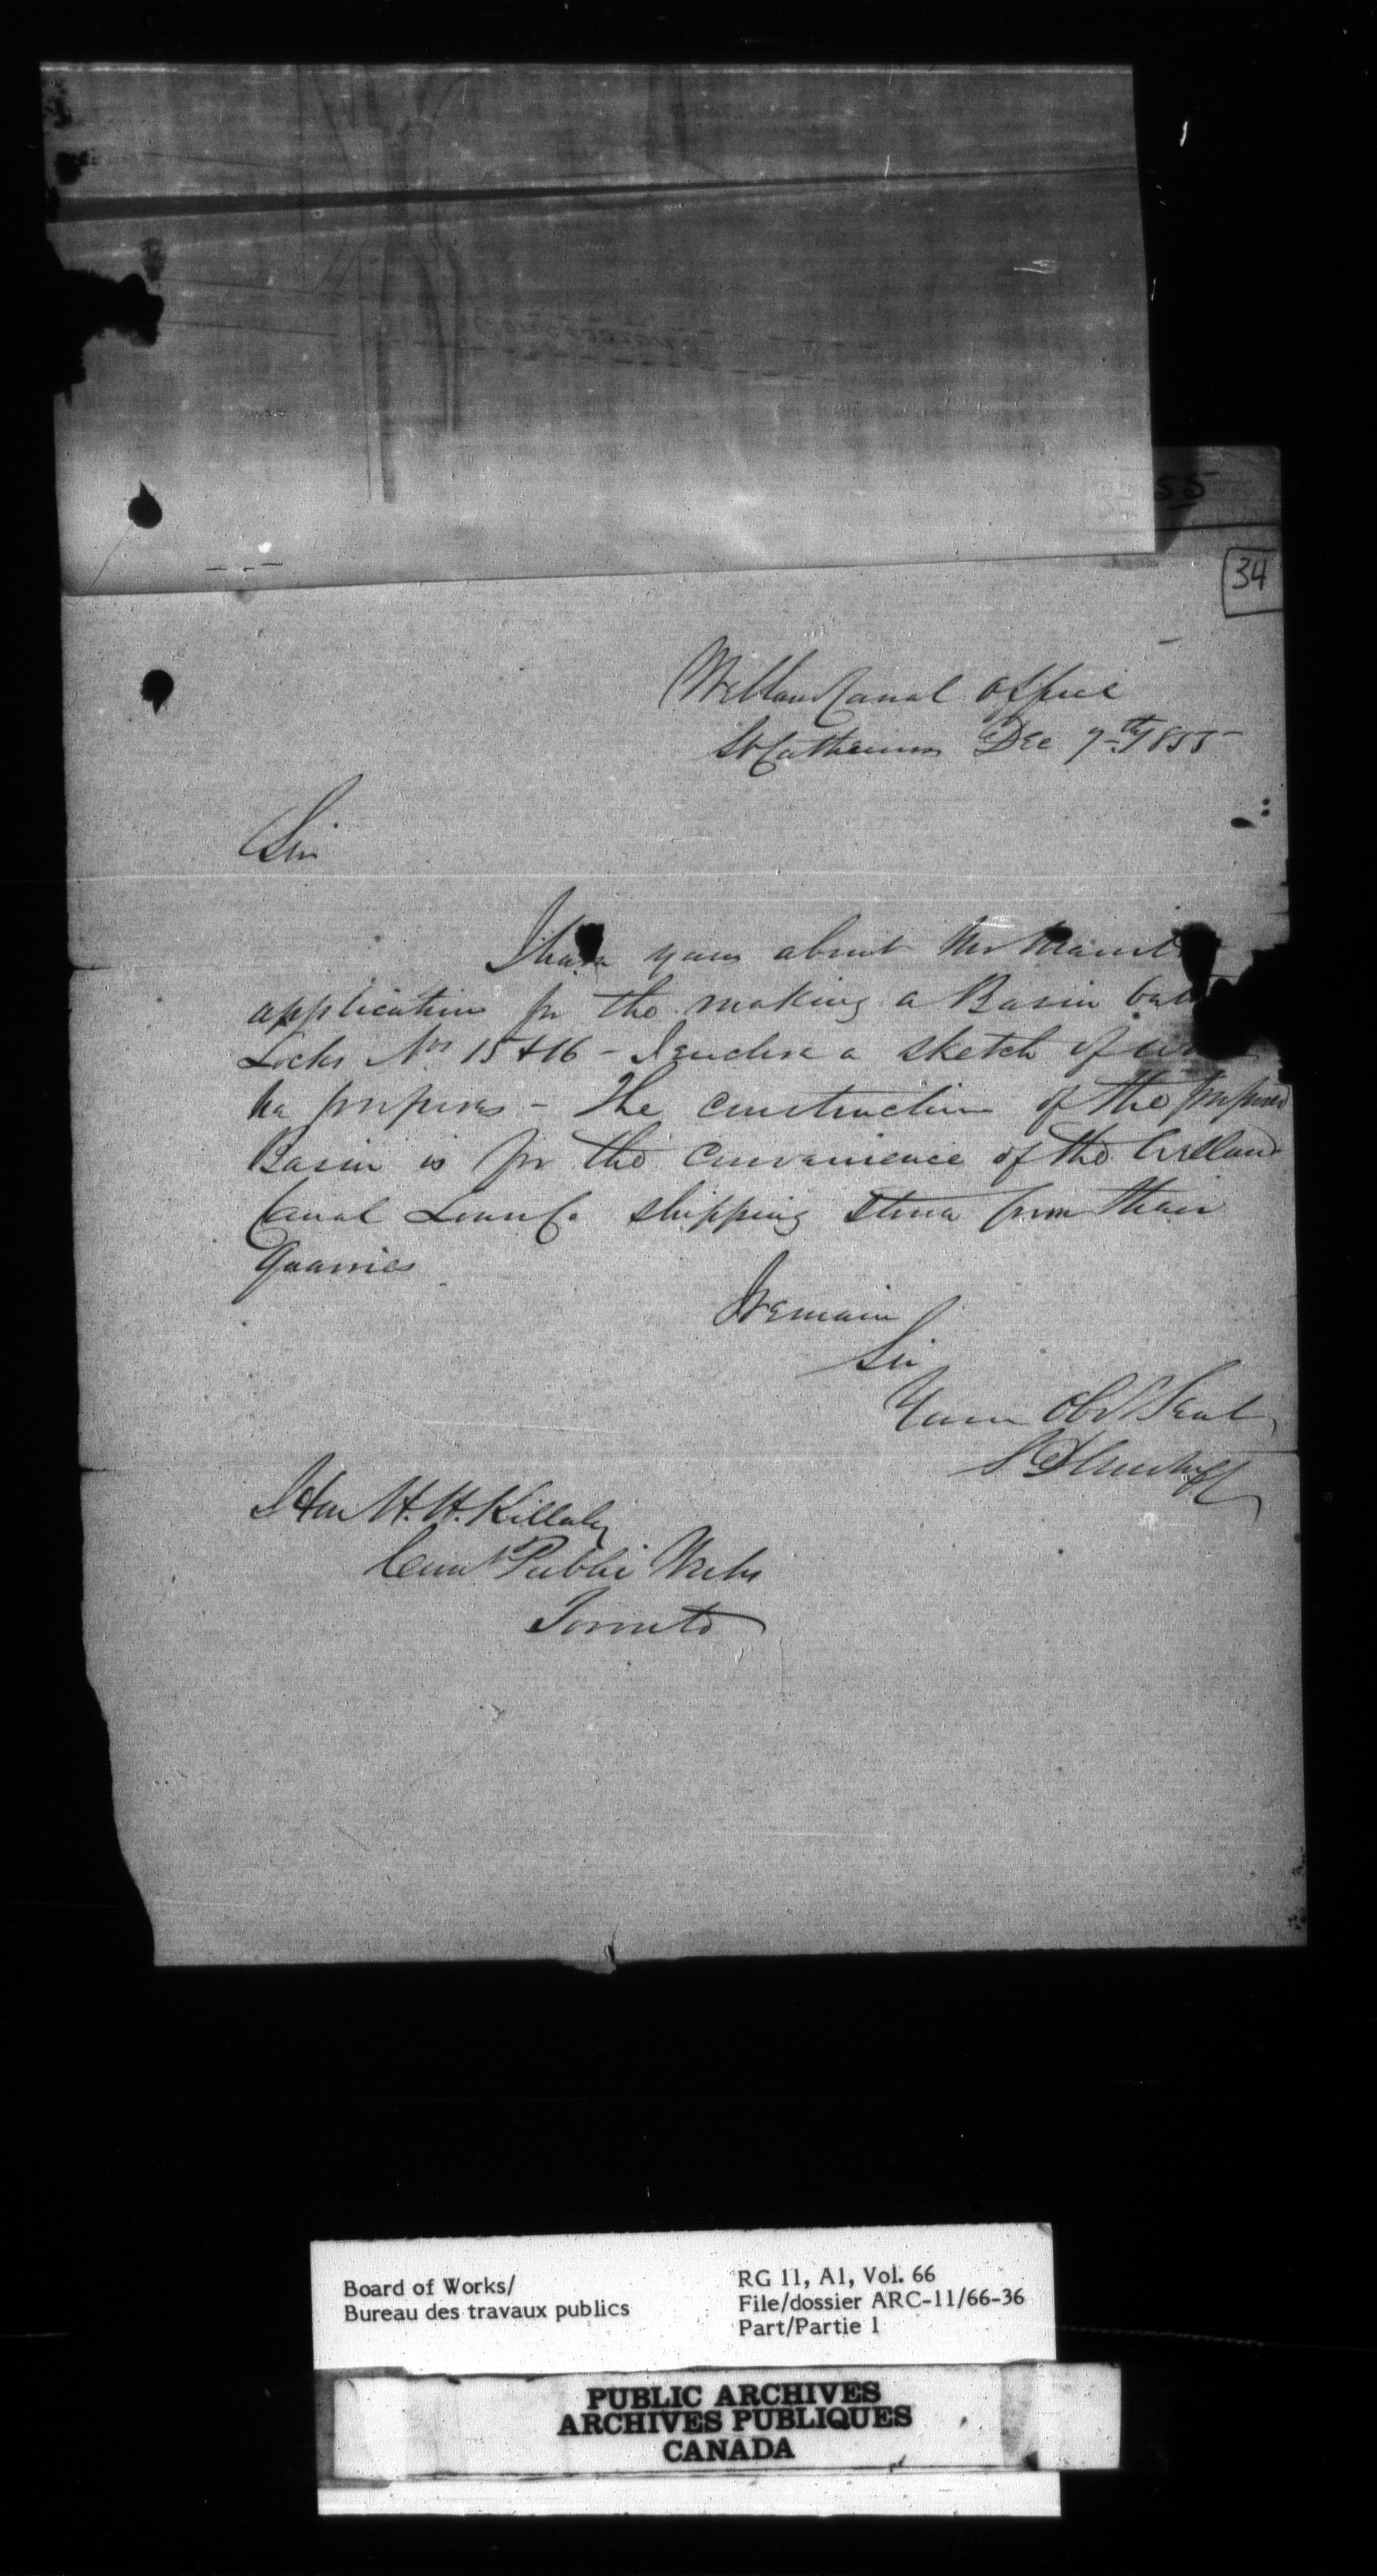 55
34
Welland Canal Office
St Catherines Dec 7th 1855
Sir
I have yours about Mr
application for the making a Basin
Locks Nos 15 & 16 - I enclose a sketch of
he proposes - The construction of the proposed
Basin is for the convenience of the Welland
Canal Loan Co shipping stone from their
Quarries
I remain
Sir
Your Obt Servt
Hon H. H. Killaly
Comr Public Works
Toronto
Board of Works/
Bureau des travaux publics
RG 11, A1, Vol. 66
File/dossier ARC-11/66-36
Part/Partie 1
PUBLIC ARCHIVES
ARCHIVES PUBLIQUES
CANADA